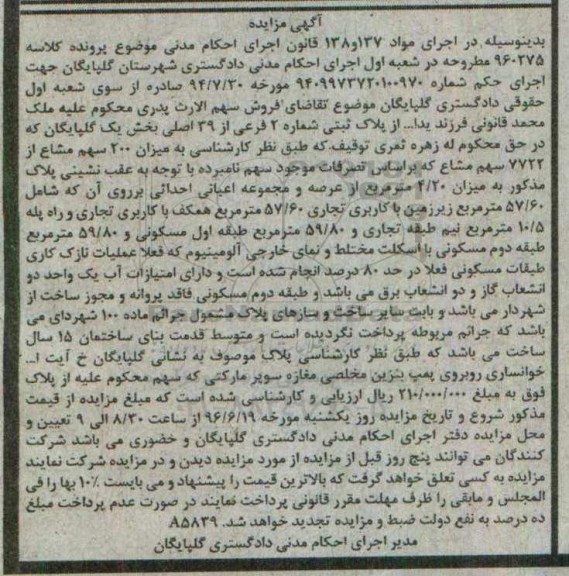 آگهی مزایده
بدینوسیله در اجرای مواد ۱۳۷و۱۳۸ قانون اجرای احکام مدنی موضوع پرونده کلاسه
۹۶۰۲۷۵ مطروحه در شعبه اول اجرای احکام مدنی دادگستری شهرستان گلپایگان جهت
اجرای حکم شماره ۹۴۰۹۹۷۳۷۲۰۱۰۰۹۷۰ مورخه ۹۴/۷/۲۰ صادره از سوی شعبه اول
حقوقی دادگستری گلپایگان موضوع تقاضای فروش سهم الارث پدری محکوم علیه ملک
محمد قانونی فرزند یدا... از پلاک ثبتی شماره ۲ فرعی از ۳۹ اصلی بخش یک گلپایگان که
در حق محکوم له زهره ثمری توقیف.که طبق نظر کارشناسی به میزان ۲۰۰ سهم مشاع از
۷۷۲۲ سهم مشاع که براساس تصرفات موجود سهم نامبرده با توجه به عقب نشینی پلاک
مذکور به میزان ۴/۲۰ مترمربع از عرصه و مجموعه اعیانی احداثی برروی آن که شامل
۵۷/۶۰ مترمربع زیرزمین با کاربری تجاری ۵۷/۶۰ مترمربع همکف با کاربری تجاری و راه پله
۱۰/۵ مترمربع نیم طبقه تجاری و ۵۹/۸۰ مترمربع طبقه اول مسکونی و ۵۹/۸۰ مترمربع
طبقه دوم مسکونی با اسکلت مختلط و نمای خارجی آلومینیوم که فعلا عملیات نازک کاری
طبقات مسکونی فعلا در حد ۸۰ درصد انجام شده است و دارای امتیازات آب یک واحد دو
انشعاب گاز و دو انشعاب برق می باشد و طبقه دوم مسکونی فاقد پروانه و مجوز ساخت از
شهردار می باشد و بابت سایر ساخت و سازهای پلاک مشمول جرائم ماده ۱۰۰ شهردای می
باشد که جرائم مربوطه پرداخت نگردیده است و متوسط قدمت بنای ساختمان ۱۵ سال
ساخت می باشد که طبق نظر کارشناسی پلاک موصوف به نشانی گلپایگان خ آیت ا...
خوانساری روبروی پمپ بنزین مخلصی مغازه سوپر مارکتی که سهم محکوم علیه از پلاک
فوق به مبلغ ۲۱۰/۰۰۰/۰۰۰ ریال ارزیابی و کارشناسی شده است که مبلغ مزایده از قیمت
مذکور شروع و تاریخ مزایده روز یکشنبه مورخه ۹۶/۶/۱۹ از ساعت ۸/۳۰ الی ۹ تعیین و
محل مزایده دفتر اجرای احکام مدنی دادگستری گلپایگان و حضوری می باشد شرکت
کنندگان می توانند پنج روز قبل از مزایده از مورد مزایده دیدن و در مزایده شرکت نمایند
مزایده به کسی تعلق خواهد گرفت که بالاترین قیمت را پیشنهاد و می بایست ۱۰٪ بها را فی
المجلس و مابقی را ظرف مهلت مقرر قانونی پرداخت نمایند در صورت عدم پرداخت مبلغ
ده درصد به نفع دولت ضبط و مزایده تجدید خواهد شد. A۵۸۳۹
مدیر اجرای احکام مدنی دادگستری گلپایگان